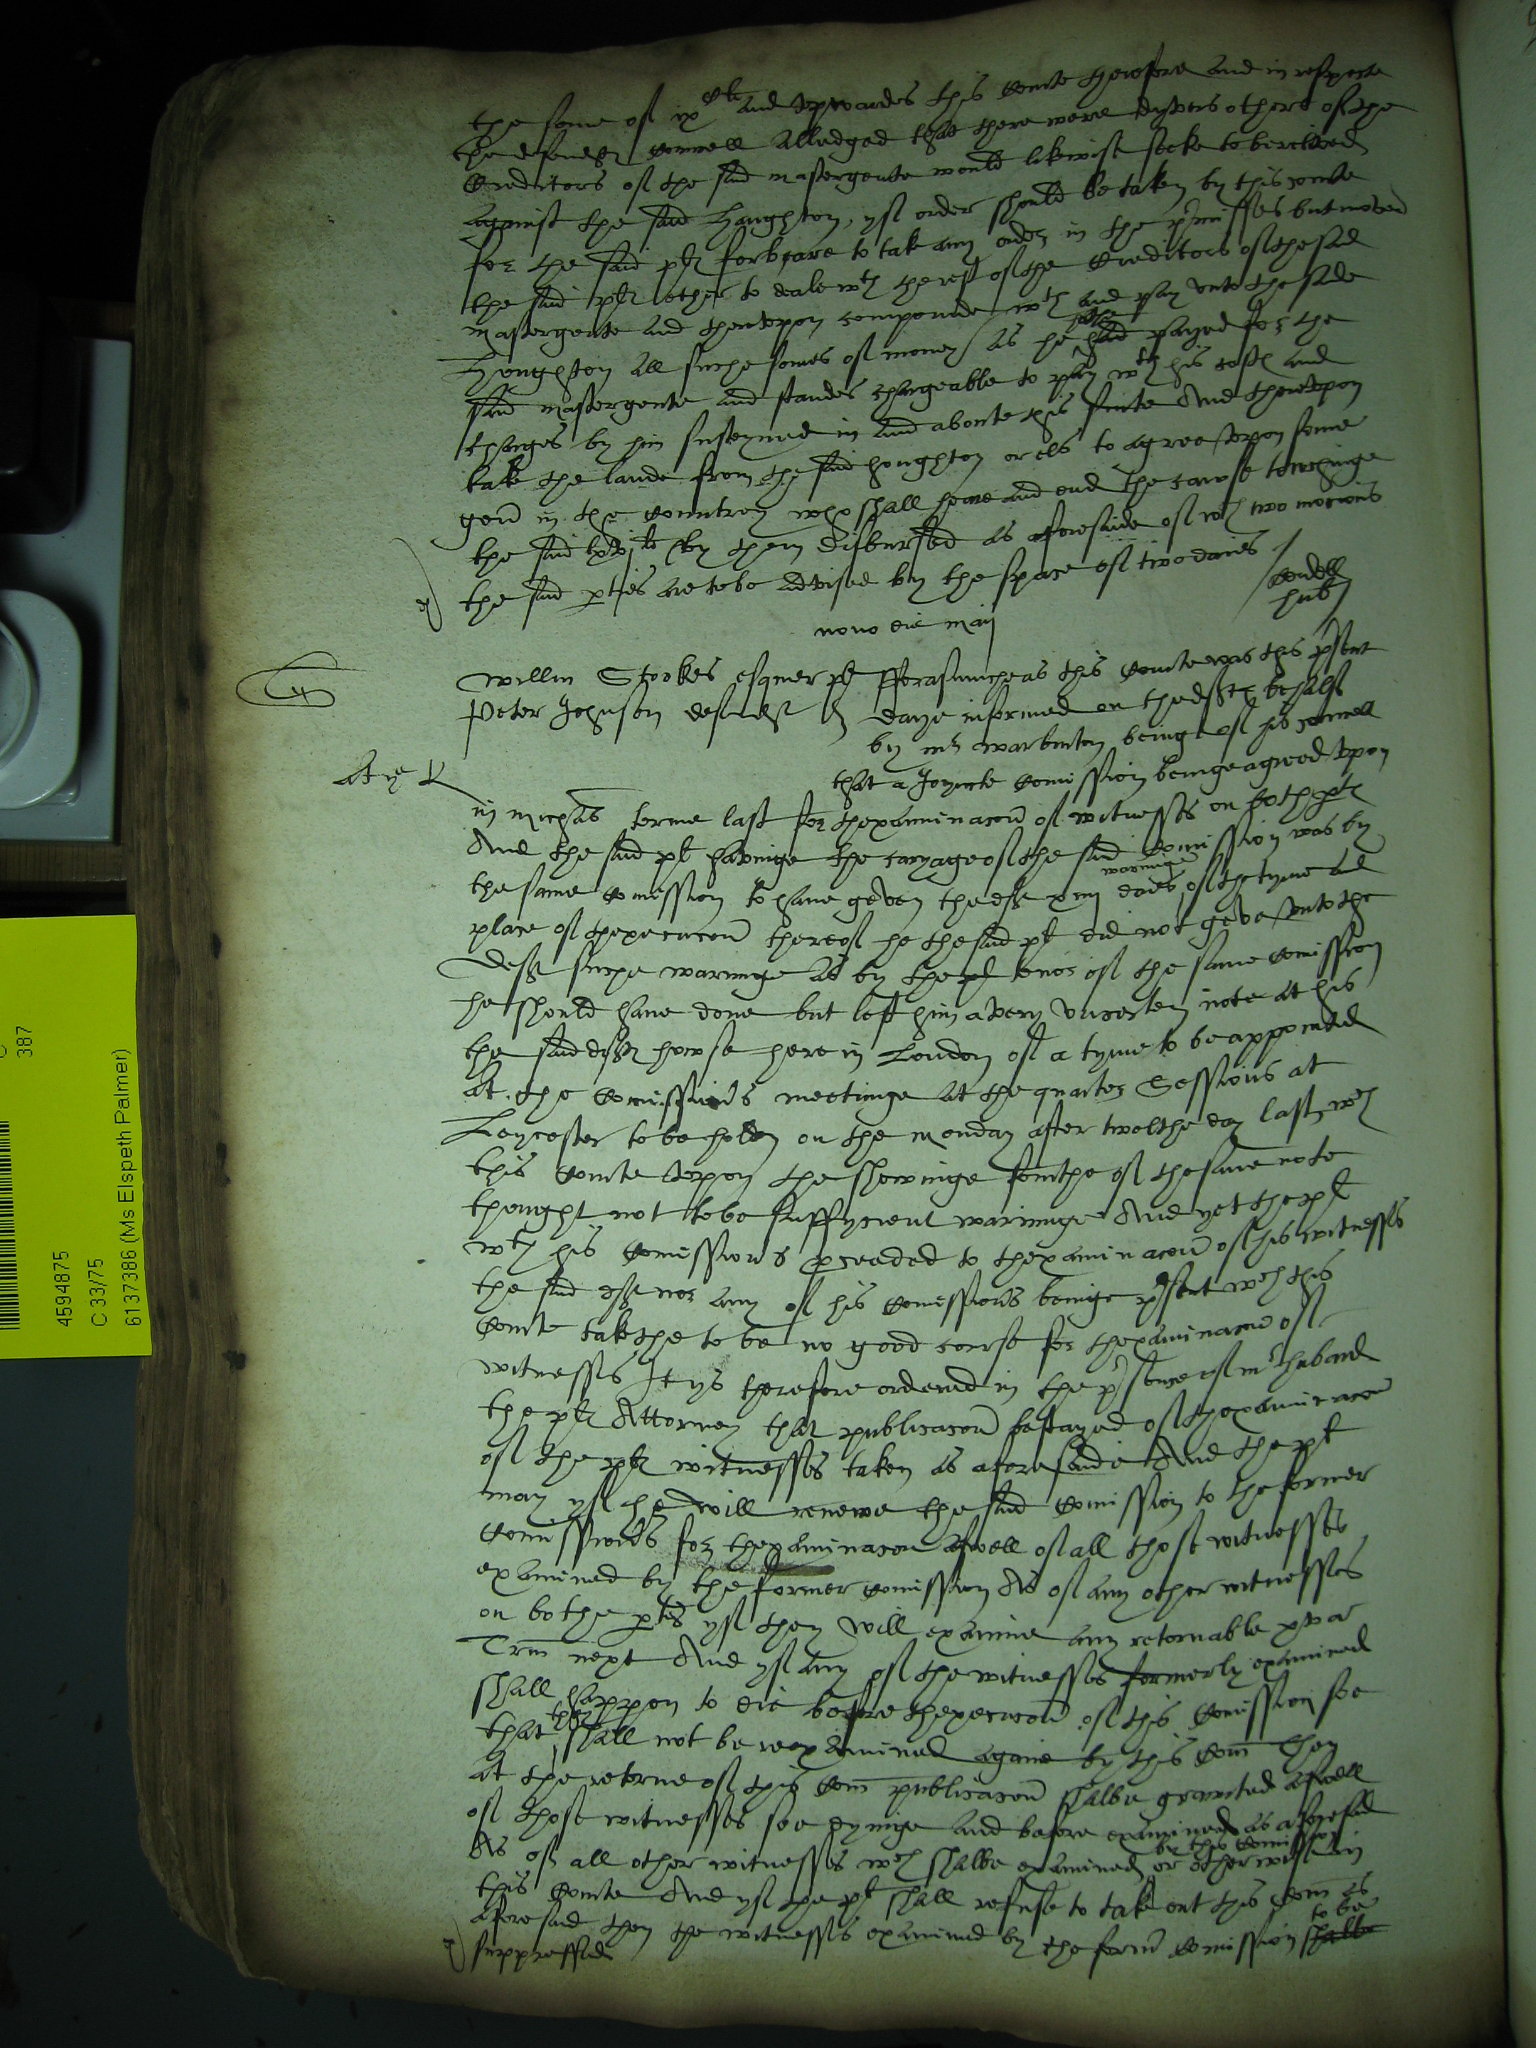 the some of ixli and upwardes this Courte therefore and in respecte
the defendtes Councell alledged that there were dyvers others of the
Creditors of the said Mastergente would likewise seeke to be releved
against the said Haughton, yf order should be taken by this courte
for the said pl forbeare to take any order in the premisses but moved
the said pl ether to deale wth the rest of the Creditors of the said
Mastergente and therupon compounde wth and pay unto the saide
Houghton all suche somes of money as he hathe payed for the
said Mastergente and standes chargeable to pay wth his costes and
charges by him susteyned in and aboute this suite And therupon
take the lande from the said houghton or els to agree upon some
gent in the Countrey who shall heare and end the cause touchinge
the said li by them disbursed as aforesaide of wch two mocions
the said pties are to be advised by the space of two daies
Cordell
hub
nono die maij
Willm Stookes esquier pl fforasmuche as this Courte was this psent
Peter Johnson defendt daye informed on thedeftes behalf
by mr warburton being of his councell
that a Joyncte Comission beinge agreed upon
in michas terme last for thexaminacon of witnesses on both ptes
And the said pl havinge the caryage of the said Comission was by
the same Comission to have geven thedef xiiij daies warninge of the tyme and
place of thexecucon therof he the said pl did not geve unto the
Def suche warninge as by the tenor of the same Comission
he should have done but left him a very uncerten note at his
the said def howse here in London of a tyme to be appointed
at the Comissioners meetinge at the quarter Sessions at
Leycester to be holden on the monday after twelthe day last wch
this Courte upon the shewinge fourthe of the same note
thought not to be suffycient warninge And yet the pl
wth his Comissioners proceded to thexaminacon of his witnesses
the said def nor any of his Comissioners beinge psent wch this
Courte takethe to be no good course for thexaminacon of
witnesses It ys therefore ordered in the psence of mr huband
the pl Attorney that publicacon be stayed of thexaminacon
of the pl witnesses taken as aforesaide And the pl
may yf he will renewe the said Comission to the former
Comissioners for thexaminacon aswell of all those witnesses
examined by the former Comission As of any other witnesses
on bothe ptes yf they will examine any retornable
Trm next And yf any of the witnesses formerly examined
shall happen to die before thexecucon of this Comission soe
that they shall not be reexamined againe by this Com Then
at the retorne of this Com publicacon shalbe graunted aswell
of those witnesses soe dyinge and before examined as aforesaid
As of all other witnesses wch shalbe examined by this Comission or otherwise in
this Courte And yf the pl shall refuse to take out this Com as
aforesaid then the witnesses examined by the former Comission shalbe to be
suppressed
387
4594875
C 33/75
6137386 (Ms Elspeth Palmer)